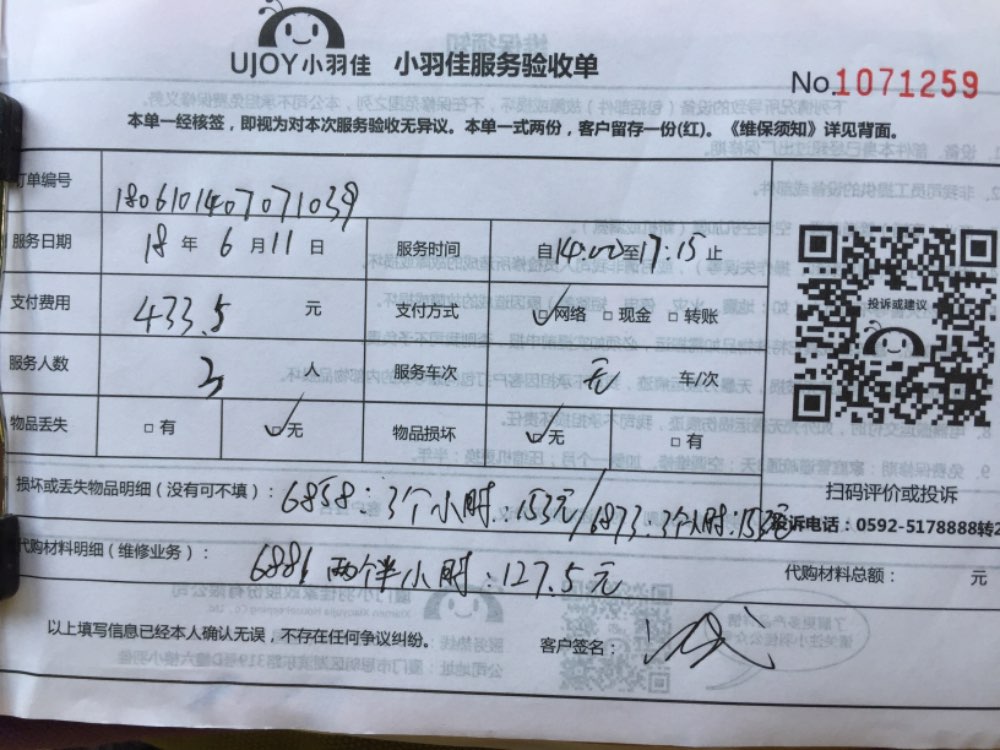 UJOY小羽佳 小羽佳服务验收单
No.1071259
本单一经核签，即视为对本次服务验收无异议。本单一式两份，客户留存一份(红)。《维保须知》详见背面。
订单编号 1806101407071039
服务日期 18 年 6 月 11 日 服务时间 自14:00至17:15止
支付费用 433.5 元 支付方式 ☑网络 □现金 □转账
投诉或建议
服务人数 3 人 服务车次 无 车/次
物品丢失 □有 ☑无 物品损坏 ☑无 □有
扫码评价或投诉
损坏或丢失物品明细（没有可不填）：6858：3个小时：153元/6873：3个小时：153元
投诉电话：0592-5178888转2
代购材料明细（维修业务）：6886 两个半小时：127.5元
代购材料总额： 元
以上填写信息已经本人确认无误，不存在任何争议纠纷。 客户签名：